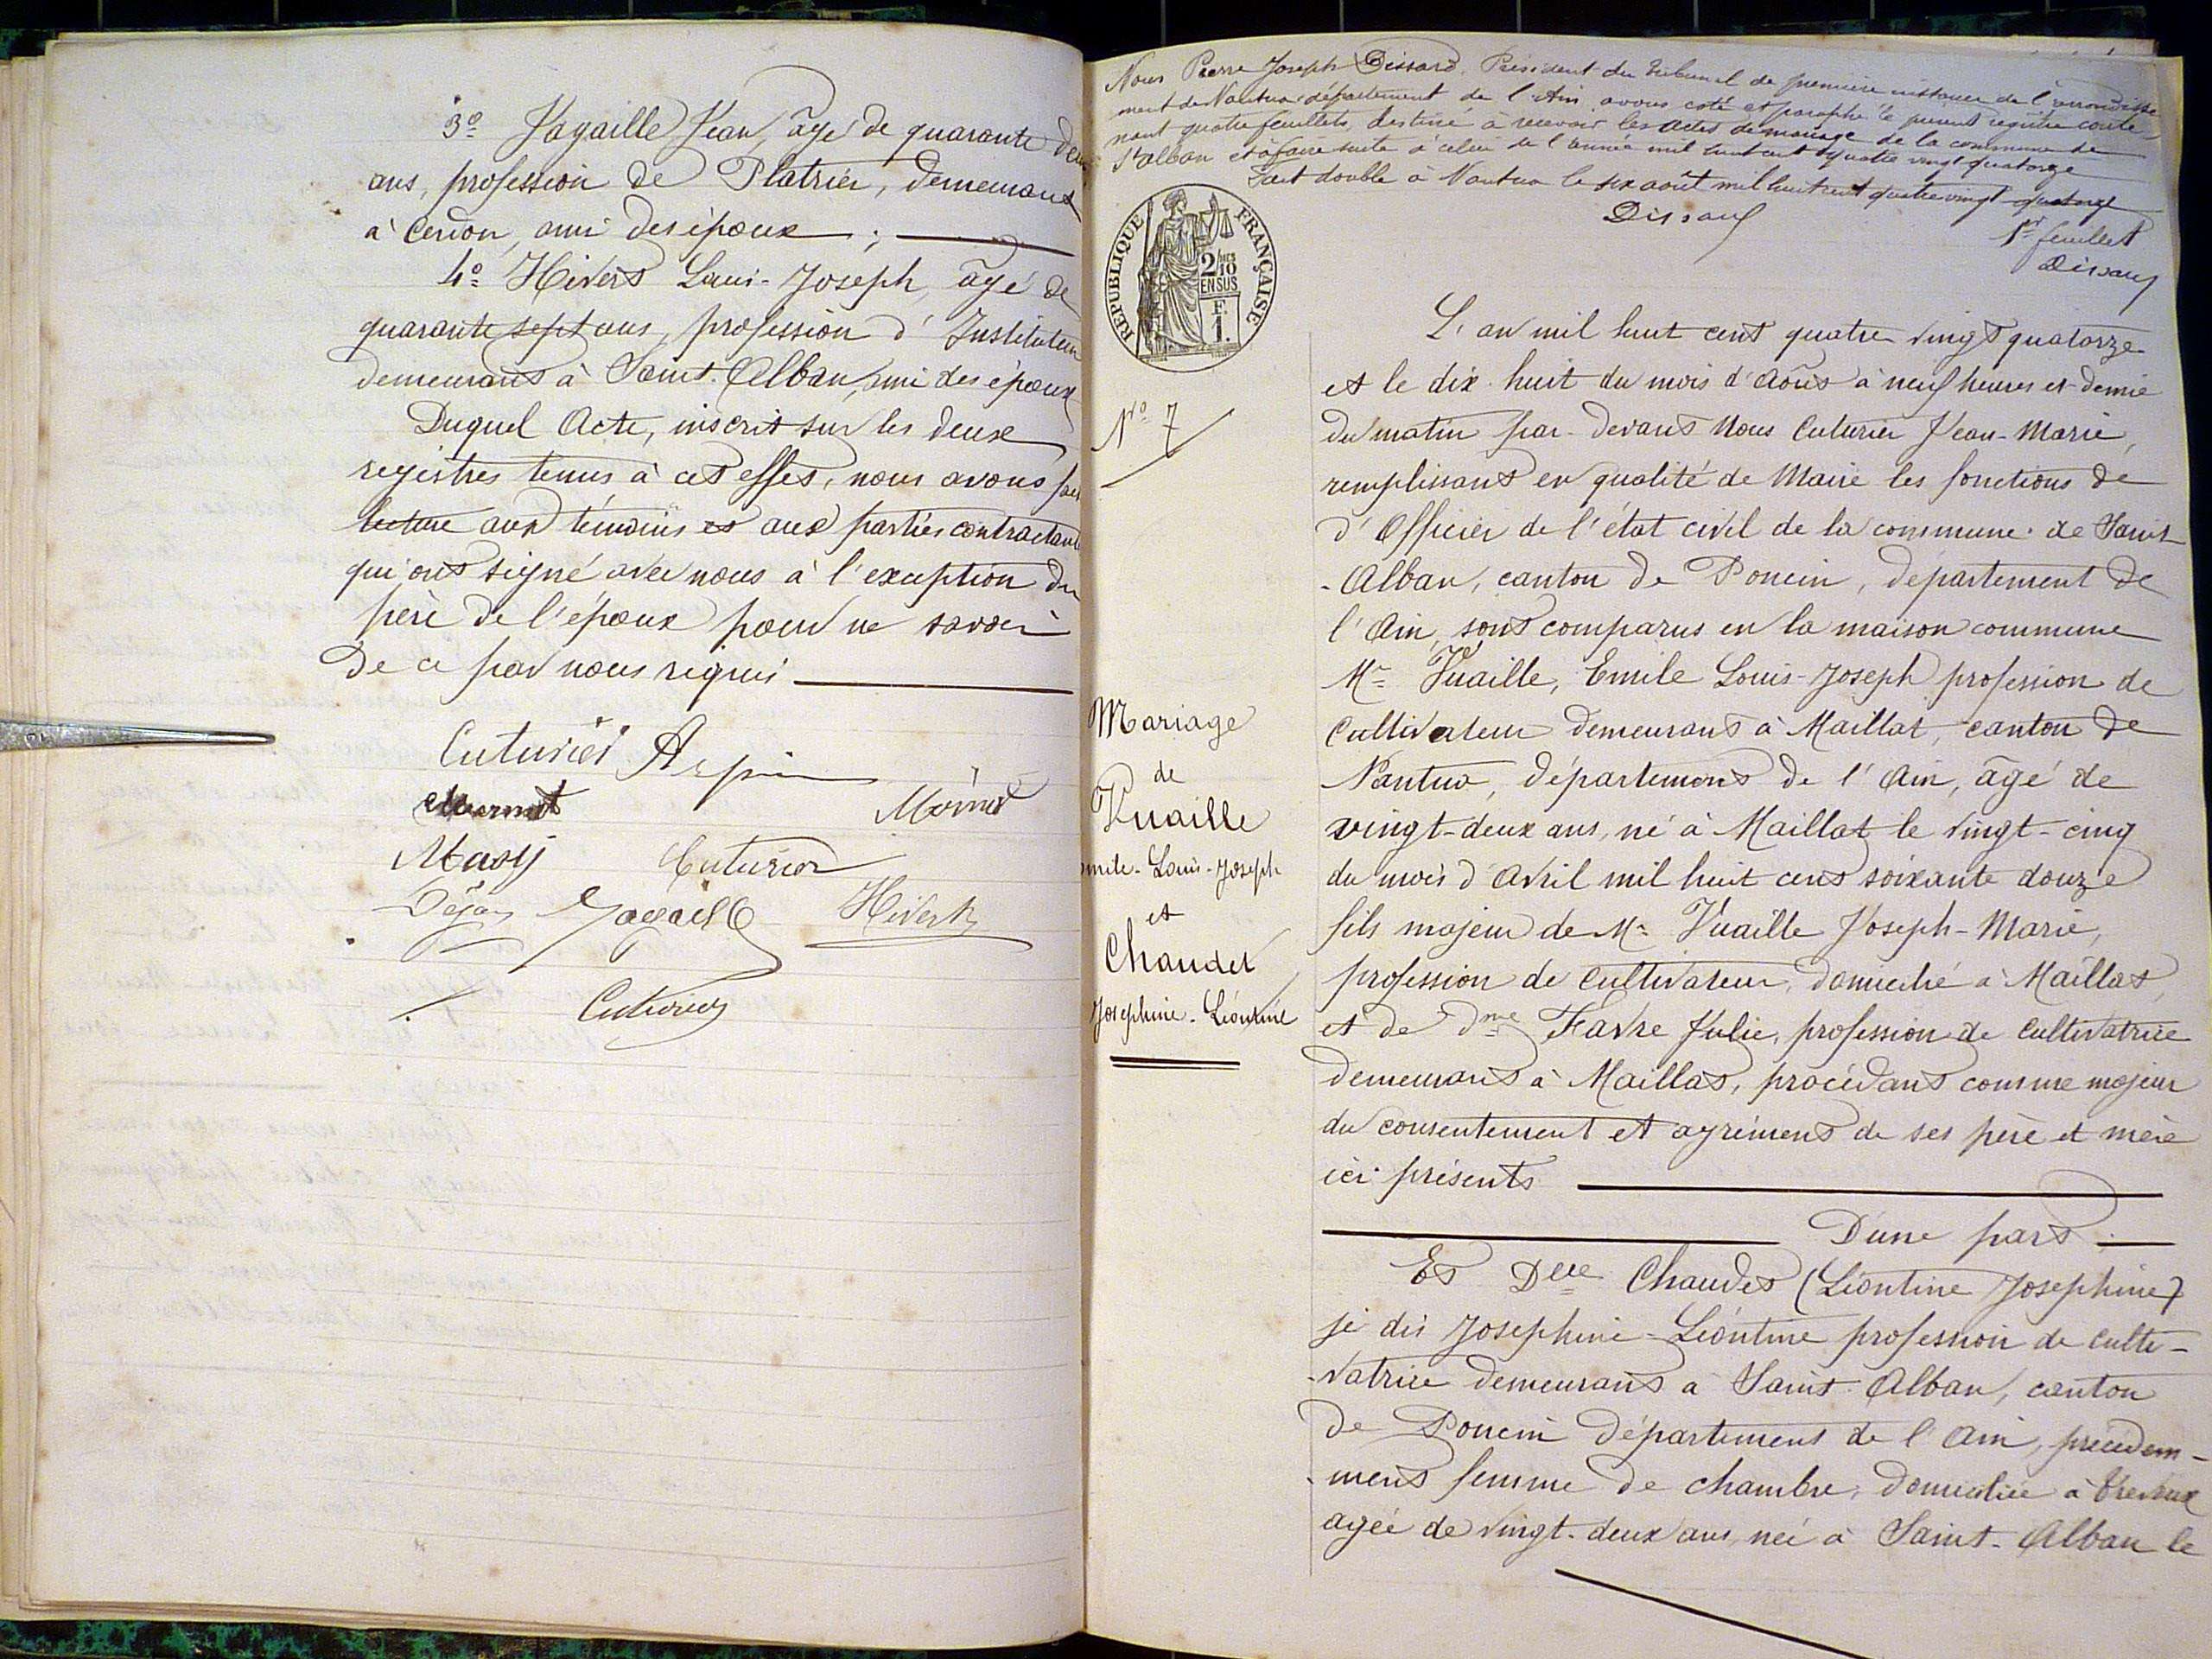 3º Jagaille Jean, âgé de quarante deux
ans, profession de Platrier, demeurant
à Cerdon, ami des époux ;
4º Hivers Louis-Joseph, âgé de
quarante sept ans, profession d'Instituteur
demeurant à Saint-Alban, ami des époux
Duquel Acte, inscrit sur les deux
registres tenus à cet effet, nous avons fait
lecture aux témoins et aux parties contractantes
qui ont signé avec nous à l'exception du
père de l'époux pour ne savoir
de ce par nous requis
Cuturier Arpin
Mermet Moinet
Masij Cuturier
Jagaille Hivert
Cuturier
Nous Pierre Joseph Dissard, Président du tribunal de première instance de l'arrondisse
ment de Nantua département de l'Ain avons coté et paraphé le présent registre conte
nant quatre feuillets, destiné à recevoir les actes de mariage de la commune de
St Alban et à faire suite à celui de l'année mil huit cent quatre vingt quatorze
Fait double à Nantua le six août mil huit cent quatre vingt quatorze
Dissard
1er feuillet
Dissard
REPUBLIQUE FRANÇAISE
2/10 MES
EN SUS
F.
1.
Nº 7
Mariage
de
Vuaille
Emile-Louis-Joseph
et
Chaudet
Josephine-Léontine
L'an mil huit cent quatre vingt quatorze
et le dix huit du mois d'Août à neuf heures et demie
du matin par-devant Nous Cuturier Jean-Marie,
remplissant en qualité de Maire les fonctions de
d'Officier de l'état civil de la commune de Saint
-Alban, canton de Poncin, département de
l'Ain, sont comparus en la maison commune
Mr Vuaille, Emile Louis-Joseph profession de
Cultivateur demeurant à Maillat, canton de
Nantua, département de l'Ain, âgé de
vingt-deux ans, né à Maillat le vingt-cinq
du mois d'Avril mil huit cent soixante douze
fils majeur de Mr Vuaille Joseph-Marie,
profession de Cultivateur, domicilié à Maillat,
et de dme Favre Julie, profession de Cultivatrice
demeurant à Maillat, procédant comme majeur
du consentement et agrément de ses père et mère
ici présents
D'une part
Et Delle Chaudet (Léontine Josephine)
je dis Josephine-Léontine profession de culti-
-vatrice demeurant à Saint-Alban, canton
de Poncin département de l'Ain, précédem-
-ment femme de chambre, domiciliée à Trévoux
agée de vingt-deux ans, née à Saint-Alban le